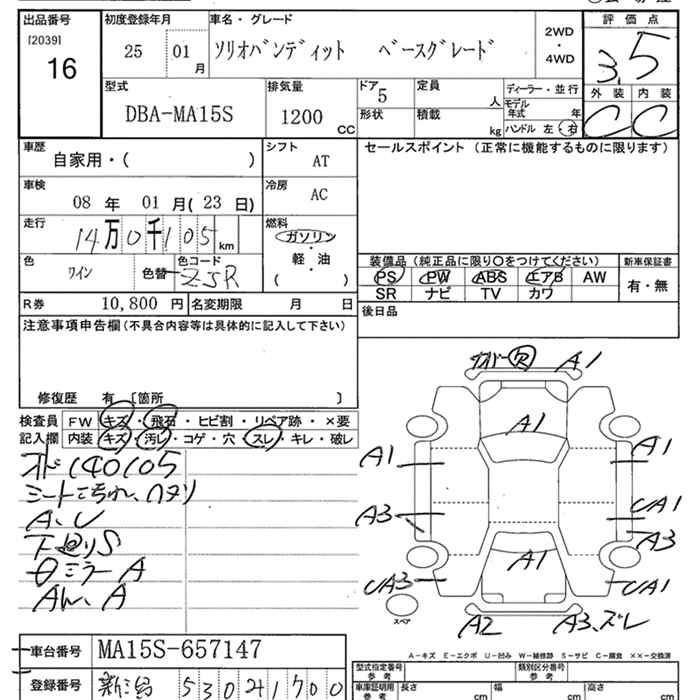 出品番号 初度登録年月 車名・グレード 評価点
[2039] 16 25 01月 ソリオバンディット ベースグレード 2WD・4WD 3.5
外装 内装
C C
型式 排気量 ドア 定員 ディーラー・並行
DBA-MA15S 1200 CC 5 人 モデル年式 年
形状 積載 kg ハンドル 左・右
車歴 シフト セールスポイント (正常に機能するものに限ります)
自家用・( ) AT
車検 冷房
08年 01月(23日) AC
走行 燃料
14万0千105km ガソリン・軽・油
色 色コード ( )
ワイン 色替 ZJR
装備品 (純正品に限り○をつけてください) 新車保証書
PS PW ABS エアB AW 有・無
SR ナビ TV カワ
R券 10,800円 名変期限 月 日
後日品
注意事項申告欄 (不具合内容等は具体的に記入して下さい)
修復歴 有 [箇所 ]
検査員 FW キズ・飛石・ヒビ割・リペア跡・×要
記入欄 内装 キズ・汚レ・コゲ・穴・スレ・キレ・破レ
140105
A、U
下廻りS
ミラーA
A1
A1
A1 A1
UA1
A3 A3
A1
UA3 UA1
スペア
A2 A3、ズレ
A-キズ E-エクボ U-凹み W-補修跡 S-サビ C-腐食 ××-交換済
車台番号 MA15S-657147
型式指定番号 参考 類別区分番号 参考
登録番号 新潟 530 ち 1700
車庫証明用 参考 長さ cm 幅 cm 高さ cm